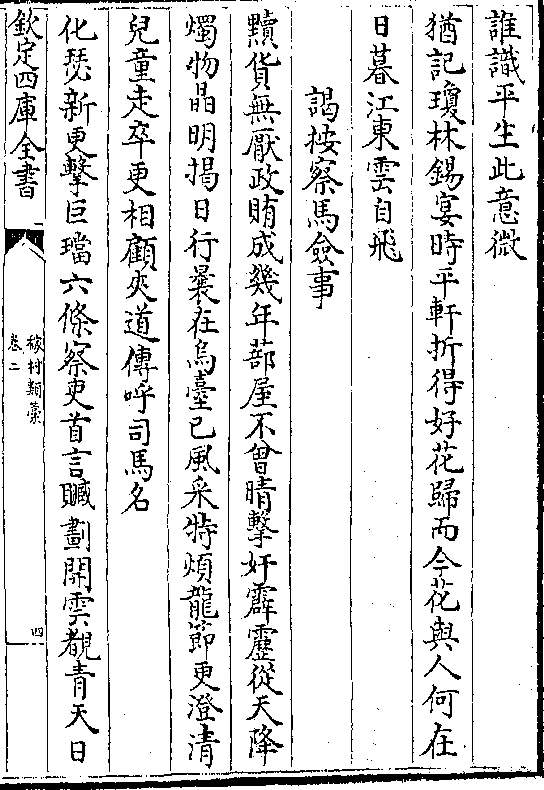 誰識平生此意微
猶記瓊林錫宴時平軒折得好花歸而今花與人何在
日暮江東雲自飛
謁按察馬僉事
黷貨無厭政賄成幾年蔀屋不曾晴擊奸霹靂從天降
燭物晶明揭日行曩在烏臺已風采特煩龍節更澄清
兒童走卒更相顧夾道傳呼司馬名
化瑟新更擊巨璫六條察吏首言贓劃開雲覩青天日
欽定四庫全書
稼村類藁
卷二
四